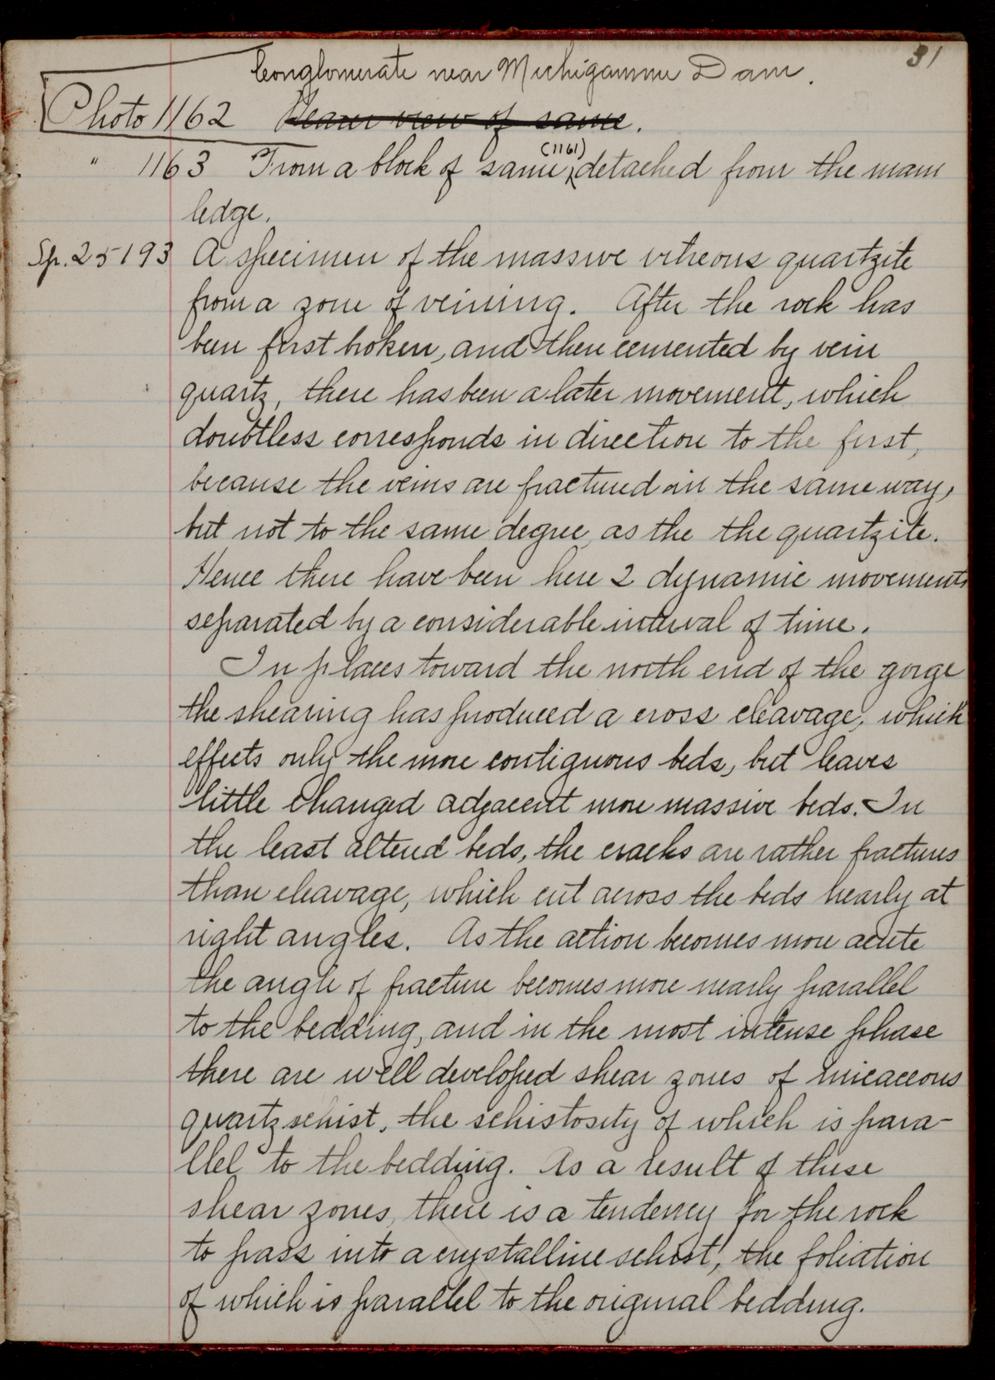 31
Conglomerate near Michigamme Dam.
Photo 1162 Nearer view of same.
" 1163 From a block of same (1161) detached from the main
ledge.
Sp. 25193 A specimen of the massive vitreous quartzite
from a zone of veining. After the rock has
been first broken, and then cemented by vein
quartz, there has been a later movement, which
doubtless corresponds in direction to the first,
because the veins are fractured in the same way,
but not to the same degree, as the the quartzite.
Hence there have been here 2 dynamic movements
separated by a considerable interval of time.
In places toward the north end of the gorge
the shearing has produced a cross cleavage, which
effects only the more contiguous beds, but leaves
little changed adjacent more massive beds. In
the least altered beds, the cracks are rather fractures
than cleavage, which cut across the beds nearly at
right angles. As the action becomes more acute
the angle of fracture becomes more nearly parallel
to the bedding, and in the most intense phase
there are well developed shear zones of micaceous
quartz schist, the schistosity of which is para-
llel to the bedding. As a result of these
shear zones, there is a tendency for the rock
to pass into a crystalline schist, the foliation
of which is parallel to the original bedding.